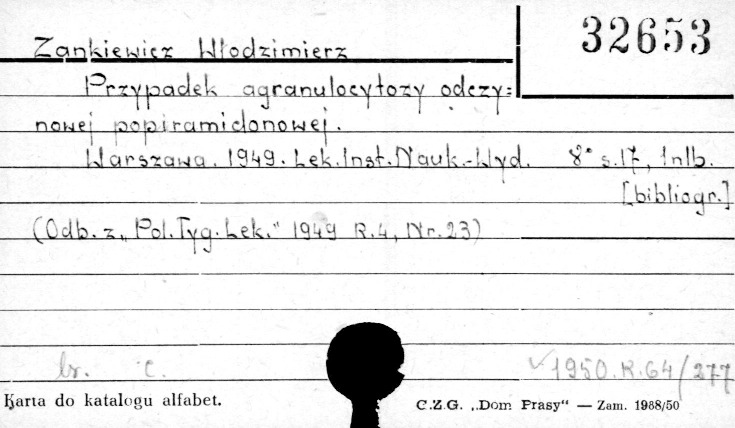 32653
Zankiewicz Włodzimierz
Przypadek agranulocytozy odczy=
nowej popiramidonowej.
Warszawa. 1949. Lek.Inst.Nauk.-Wyd. 8° s.17, 1nlb.
[bibliogr.]
(Odb. z „Pol.Tyg.Lek." 1949 R.4, Nr.23)
br. c.
1950.R.64/277
Karta do katalogu alfabet.
C.Z.G. „Dom Prasy" — Zam. 1988/50